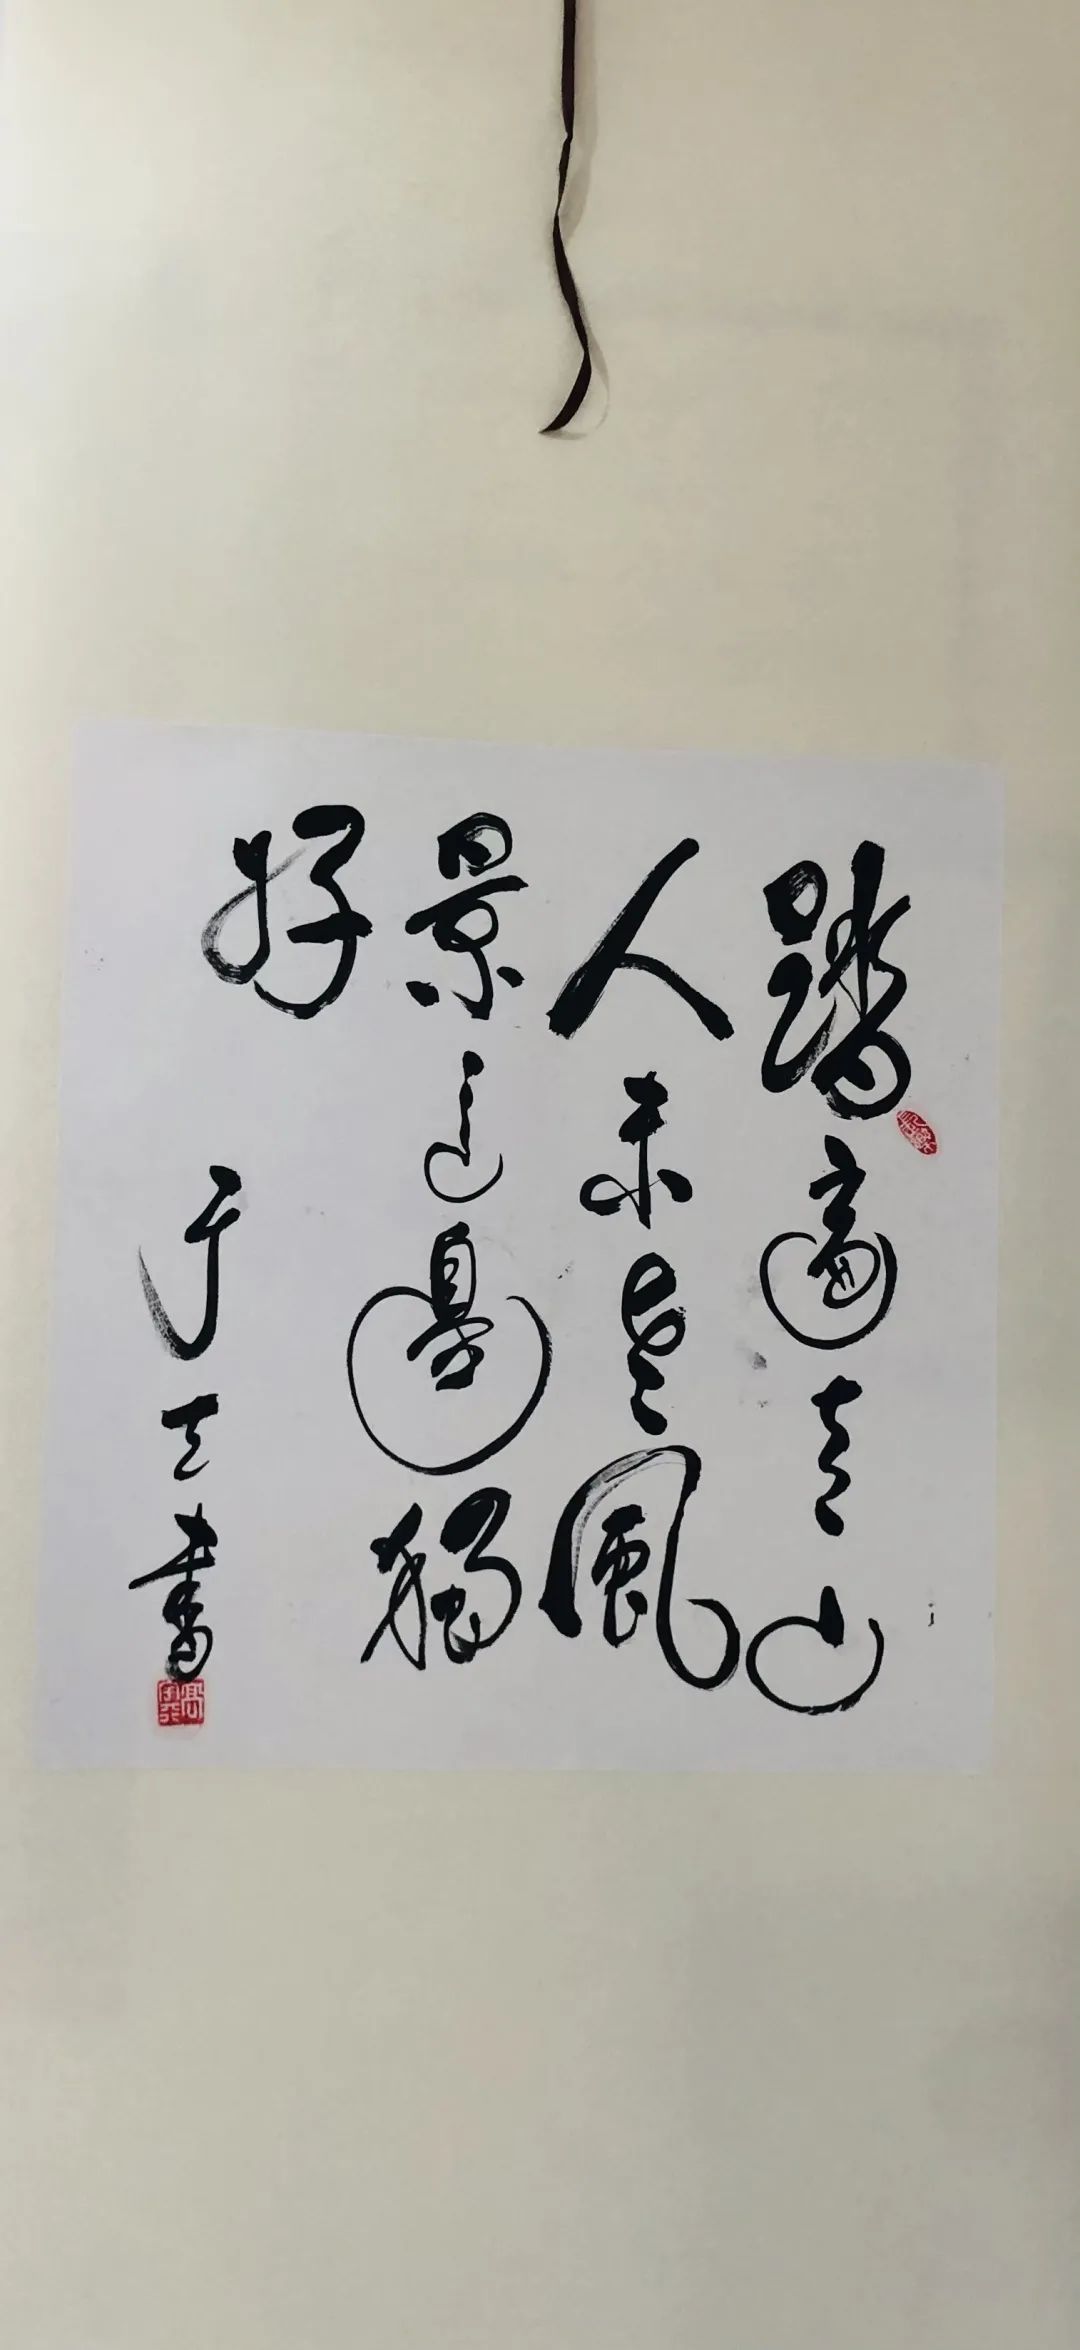 踏遍青山
人未老風
景這邊獨
好
于天書